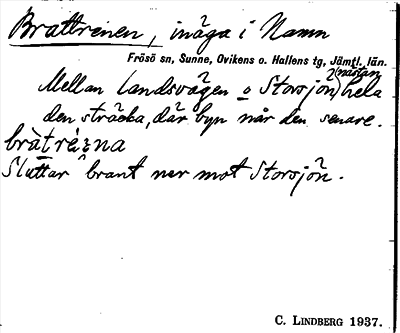 Brattreinen, inäga i Namn
Frösö sn, Sunne, Ovikens o. Hallens tg, Jämtl. län.
Mellan landsvägen o Storsjön, nästan hela
den sträcka, där byn når den senare.
Sluttar brant ner mot Storsjön.
C. LINDBERG 1937.